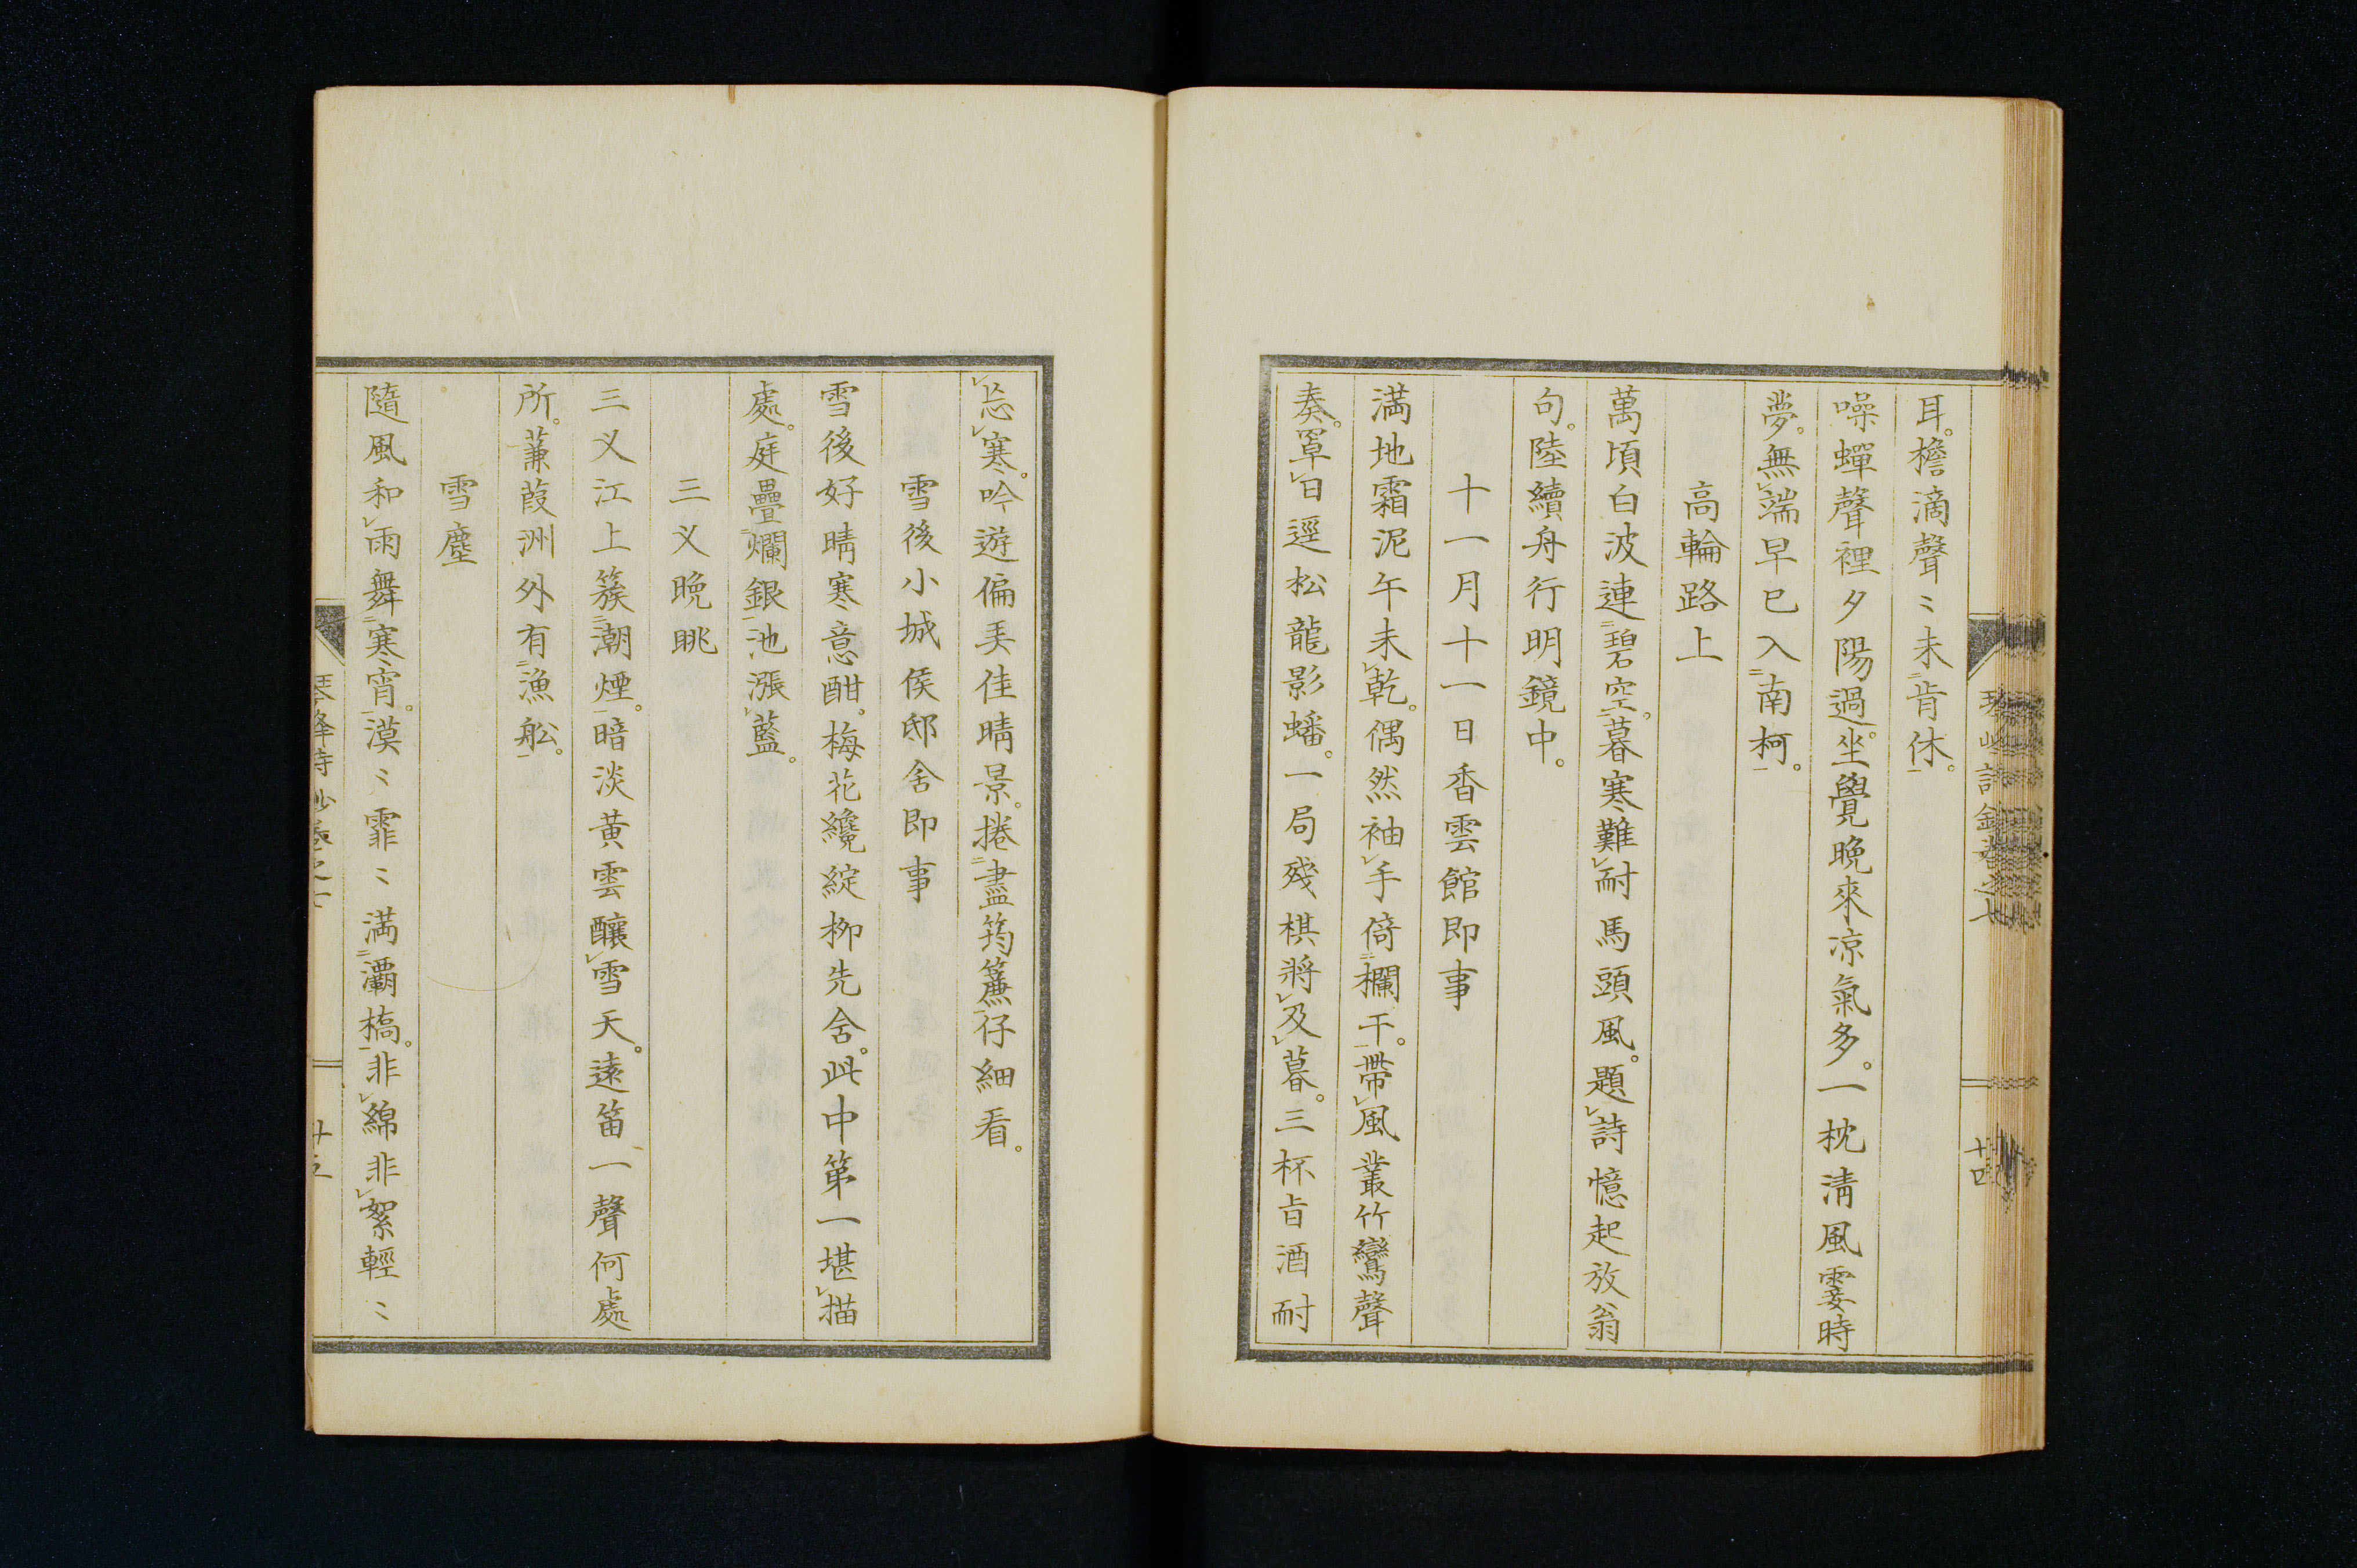 耳。檐滴聲〻未肯休。
噪蟬聲裡夕陽過。坐覺晩來凉氣多。一枕清風霎時
夢。無端早已入南柯。
高輪路上
萬頃白波連碧空。暮寒難耐馬頭風。題詩憶起放翁
句。陸續舟行明鏡中。
十一月十一日香雲館即事
満地霜泥午未乾。偶然袖手倚欄干。帶風叢竹鸞聲
奏。罩日逕松龍影蟠。一局殘棋將及暮。三杯旨酒耐
忘寒。吟遊偏羙佳晴景。捲盡筠簾仔細看。
雪後小城侯邸舍即事
雪後好晴寒意酣。梅花纔綻栁先含。此中第一堪描
處。庭疊爛銀池漲藍。
三乂晩眺
三乂江上簇潮煙。暗淡黄雲釀雪天。遠笛一聲何處
所。蒹葭洲外有漁舩。
雪塵
隨風和雨舞寒宵。漠〻霏〻満灞橋。非綿非絮輕〻
十四